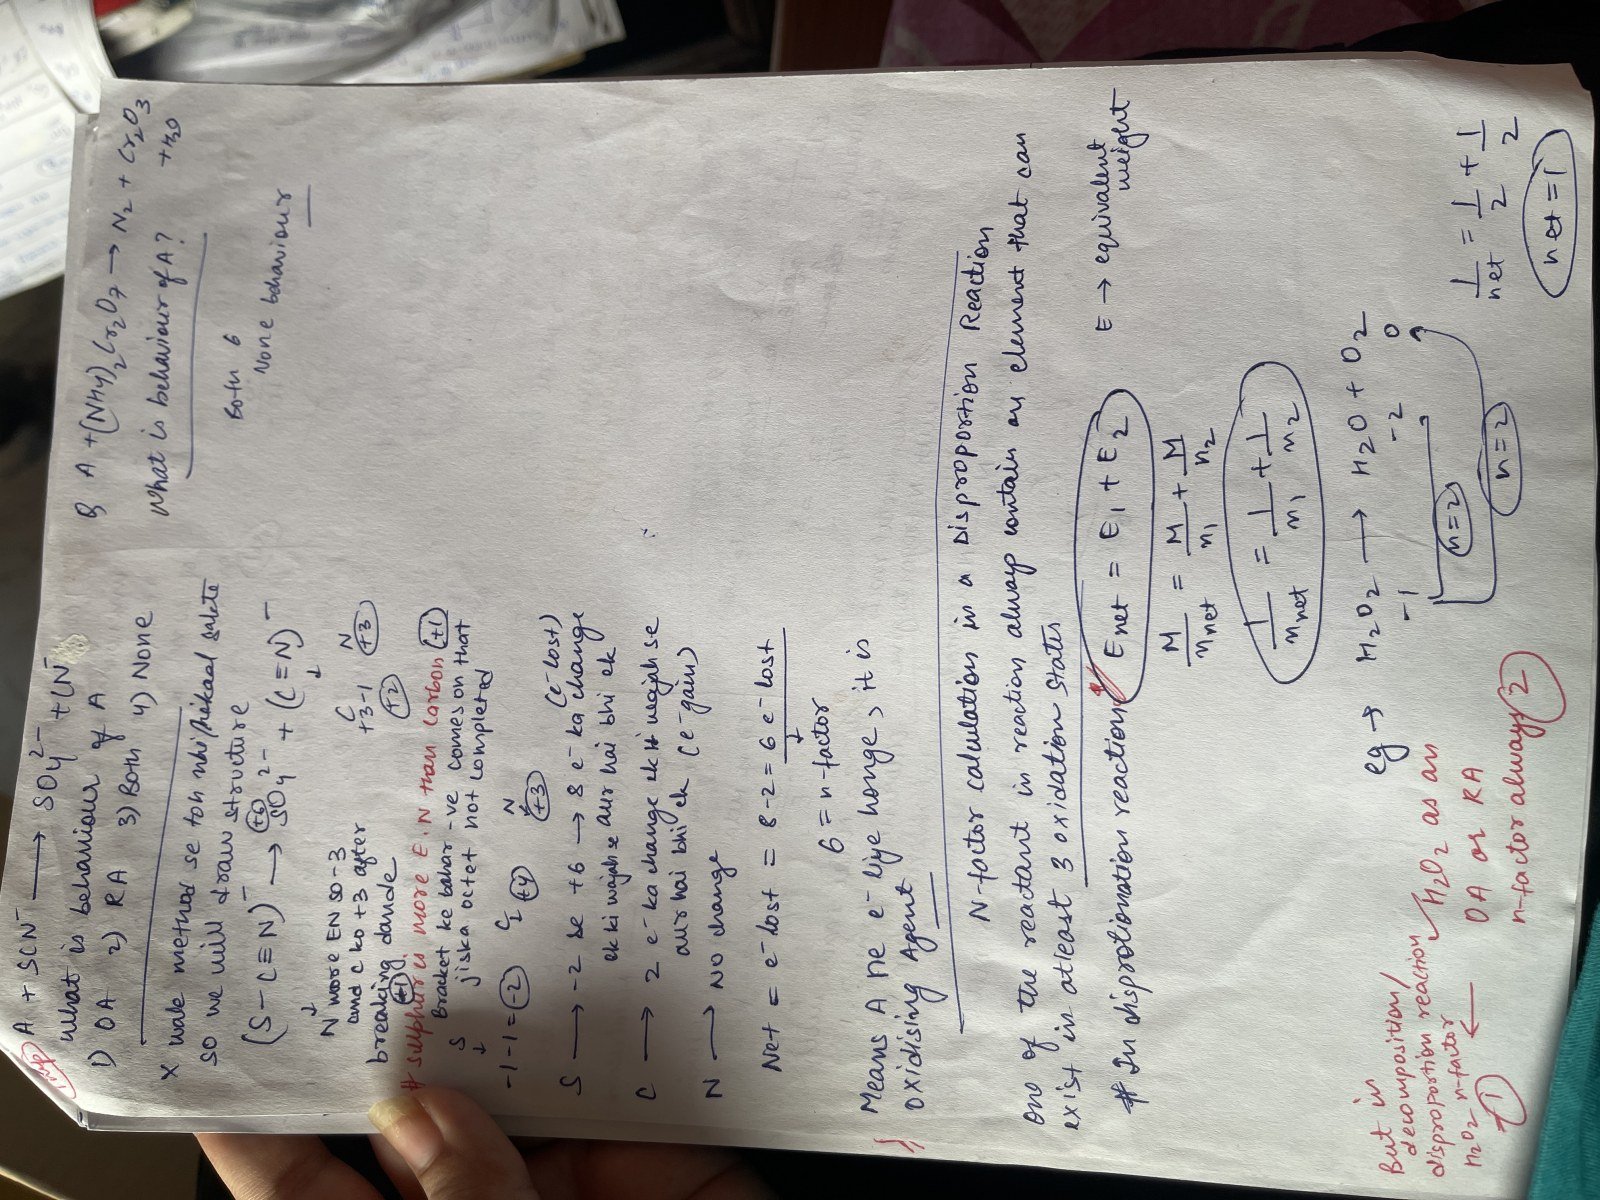 imp
A + SCN⁻ → SO4²⁻ + CN⁻
What is behaviour of A
1) OA 2) RA 3) Both 4) None
X wale method se toh nhi nikaal sakte
so we will draw structure
(S-C≡N)⁻ → SO4²⁻ + (C≡N)⁻
+6
N more EN so -3
and C ko +3 after
breaking dande
C N
+3-1 +3
+2
# sulphur is more E.N than Carbon +1
+1
Bracket ke bahar -ve comes on that
jiska octet not completed
S C N
-1-1=-2 +4 -3
S → -2 se +6 → 8 e⁻ ka change (e⁻ lost)
ek ki wajah se aur hai bhi ek
C → 2 e⁻ ka change ek ki wajah se
aur hai bhi ek (e⁻ gain)
N → No change
Net = e⁻ lost = 8-2 = 6 e⁻ lost
6 = n-factor
Means A ne e⁻ liye honge, it is
oxidising Agent
Q A + (NH4)2Cr2O7 → N2 + Cr2O3
+ H2O
What is behaviour of A?
Both 6
None behaviour
N-factor calculation in a Disproportion Reaction
One of the reactant in reaction always contain an element that can
exist in atleast 3 oxidation states
# In disprotionation reaction Enet = E1 + E2 E → equivalent
weight
M/nnet = M/n1 + M/n2
1/nnet = 1/n1 + 1/n2
eg → H2O2 → H2O + O2
-1 -2 0
n=2
n=2
1/net = 1/2 + 1/2
net = 1
H2O2 as an
OA or RA
n-factor always 2
But in
decomposition/
disproportion reaction
H2O2 n-factor
1